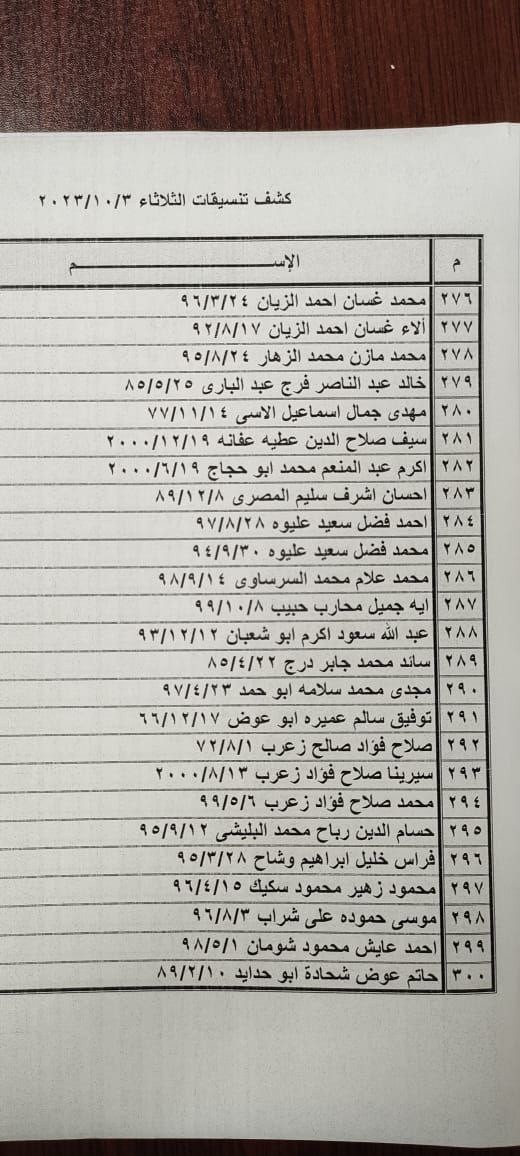 كشف تنسيقات الثلاثاء ٢٠٢٣/١٠/٣
م الإســـــــــــــــــــم
٢٧٦ محمد غسان احمد الزيان ٩٦/٣/٢٤
٢٧٧ ألاء غسان احمد الزيان ٩٢/٨/١٧
٢٧٨ محمد مازن محمد الزهار ٩٥/٨/٢٤
٢٧٩ خالد عبد الناصر فرج عبد البارى ٨٥/٥/٢٥
٢٨٠ مهدى جمال اسماعيل الاسى ٧٧/١١/١٤
٢٨١ سيف صلاح الدين عطيه عفانه ٢٠٠٠/١٢/١٩
٢٨٢ اكرم عبد المنعم محمد ابو حجاج ٢٠٠٠/٦/١٩
٢٨٣ احسان اشرف سليم المصرى ٨٩/١٢/٨
٢٨٤ احمد فضل سعيد عليوه ٩٧/٨/٢٨
٢٨٥ محمد فضل سعيد عليوه ٩٤/٩/٣٠
٢٨٦ محمد علام محمد السرساوى ٩٨/٩/١٤
٢٨٧ ايه جميل محارب حبيب ٩٩/١٠/٨
٢٨٨ عبد الله سعود اكرم ابو شعبان ٩٣/١٢/١٢
٢٨٩ سائد محمد جابر درج ٨٥/٤/٢٢
٢٩٠ مجدى محمد سلامه ابو حمد ٩٧/٤/٢٣
٢٩١ توفيق سالم عميره ابو عوض ٦٦/١٢/١٧
٢٩٢ صلاح فؤاد صالح زعرب ٧٢/٨/١
٢٩٣ سيرينا صلاح فؤاد زعرب ٢٠٠٠/٨/١٣
٢٩٤ محمد صلاح فؤاد زعرب ٩٩/٥/٦
٢٩٥ حسام الدين رباح محمد البليشى ٩٥/٩/١٢
٢٩٦ فراس خليل ابراهيم وشاح ٩٥/٣/٢٨
٢٩٧ محمود زهير محمود سكيك ٩٦/٤/١٥
٢٩٨ موسى حموده على شراب ٩٦/٨/٣
٢٩٩ احمد عايش محمود شومان ٩٨/٥/١
٣٠٠ حاتم عوض شحادة ابو حدايد ٨٩/٢/١٠